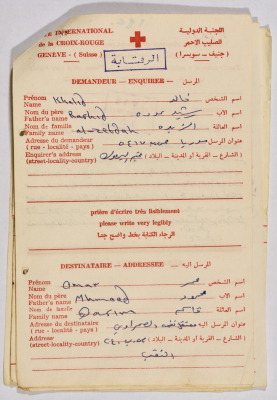 É INTERNATIONAL اللجنة الدولية
de la CROIX-ROUGE للصليب الأحمر
GENÈVE - (Suisse) (جنيف - سويسرا)
الرقابة
DEMANDEUR - ENQUIRER المرسل -
Prénom Khalid خالد اسم الشخص
Name
Nom du père Rashid رشيد اسم الاب
Father's name
Nom de famille اسم العائلة
Family name
Adresse du demandeur عنوان المرسل
(rue - localité - pays)
Enquirer's address (الشارع - القرية أو المدينة - البلاد)
(street-locality-country)
prière d'écrire très lisiblement
please write very legibly
الرجاء الكتابة بخط واضح جدا
DESTINATAIRE - ADDRESSEE المرسل اليه -
Prénom Omar عمر اسم الشخص
Name
Nom du père محمود اسم الاب
Father's name
Nom de famille Qasim قاسم اسم العائلة
Family name
Adresse du destinataire عنوان المرسل اليه
(rue - localité - pays)
Address (الشارع - القرية أو المدينة - البلاد)
(street-locality-country)
النقب